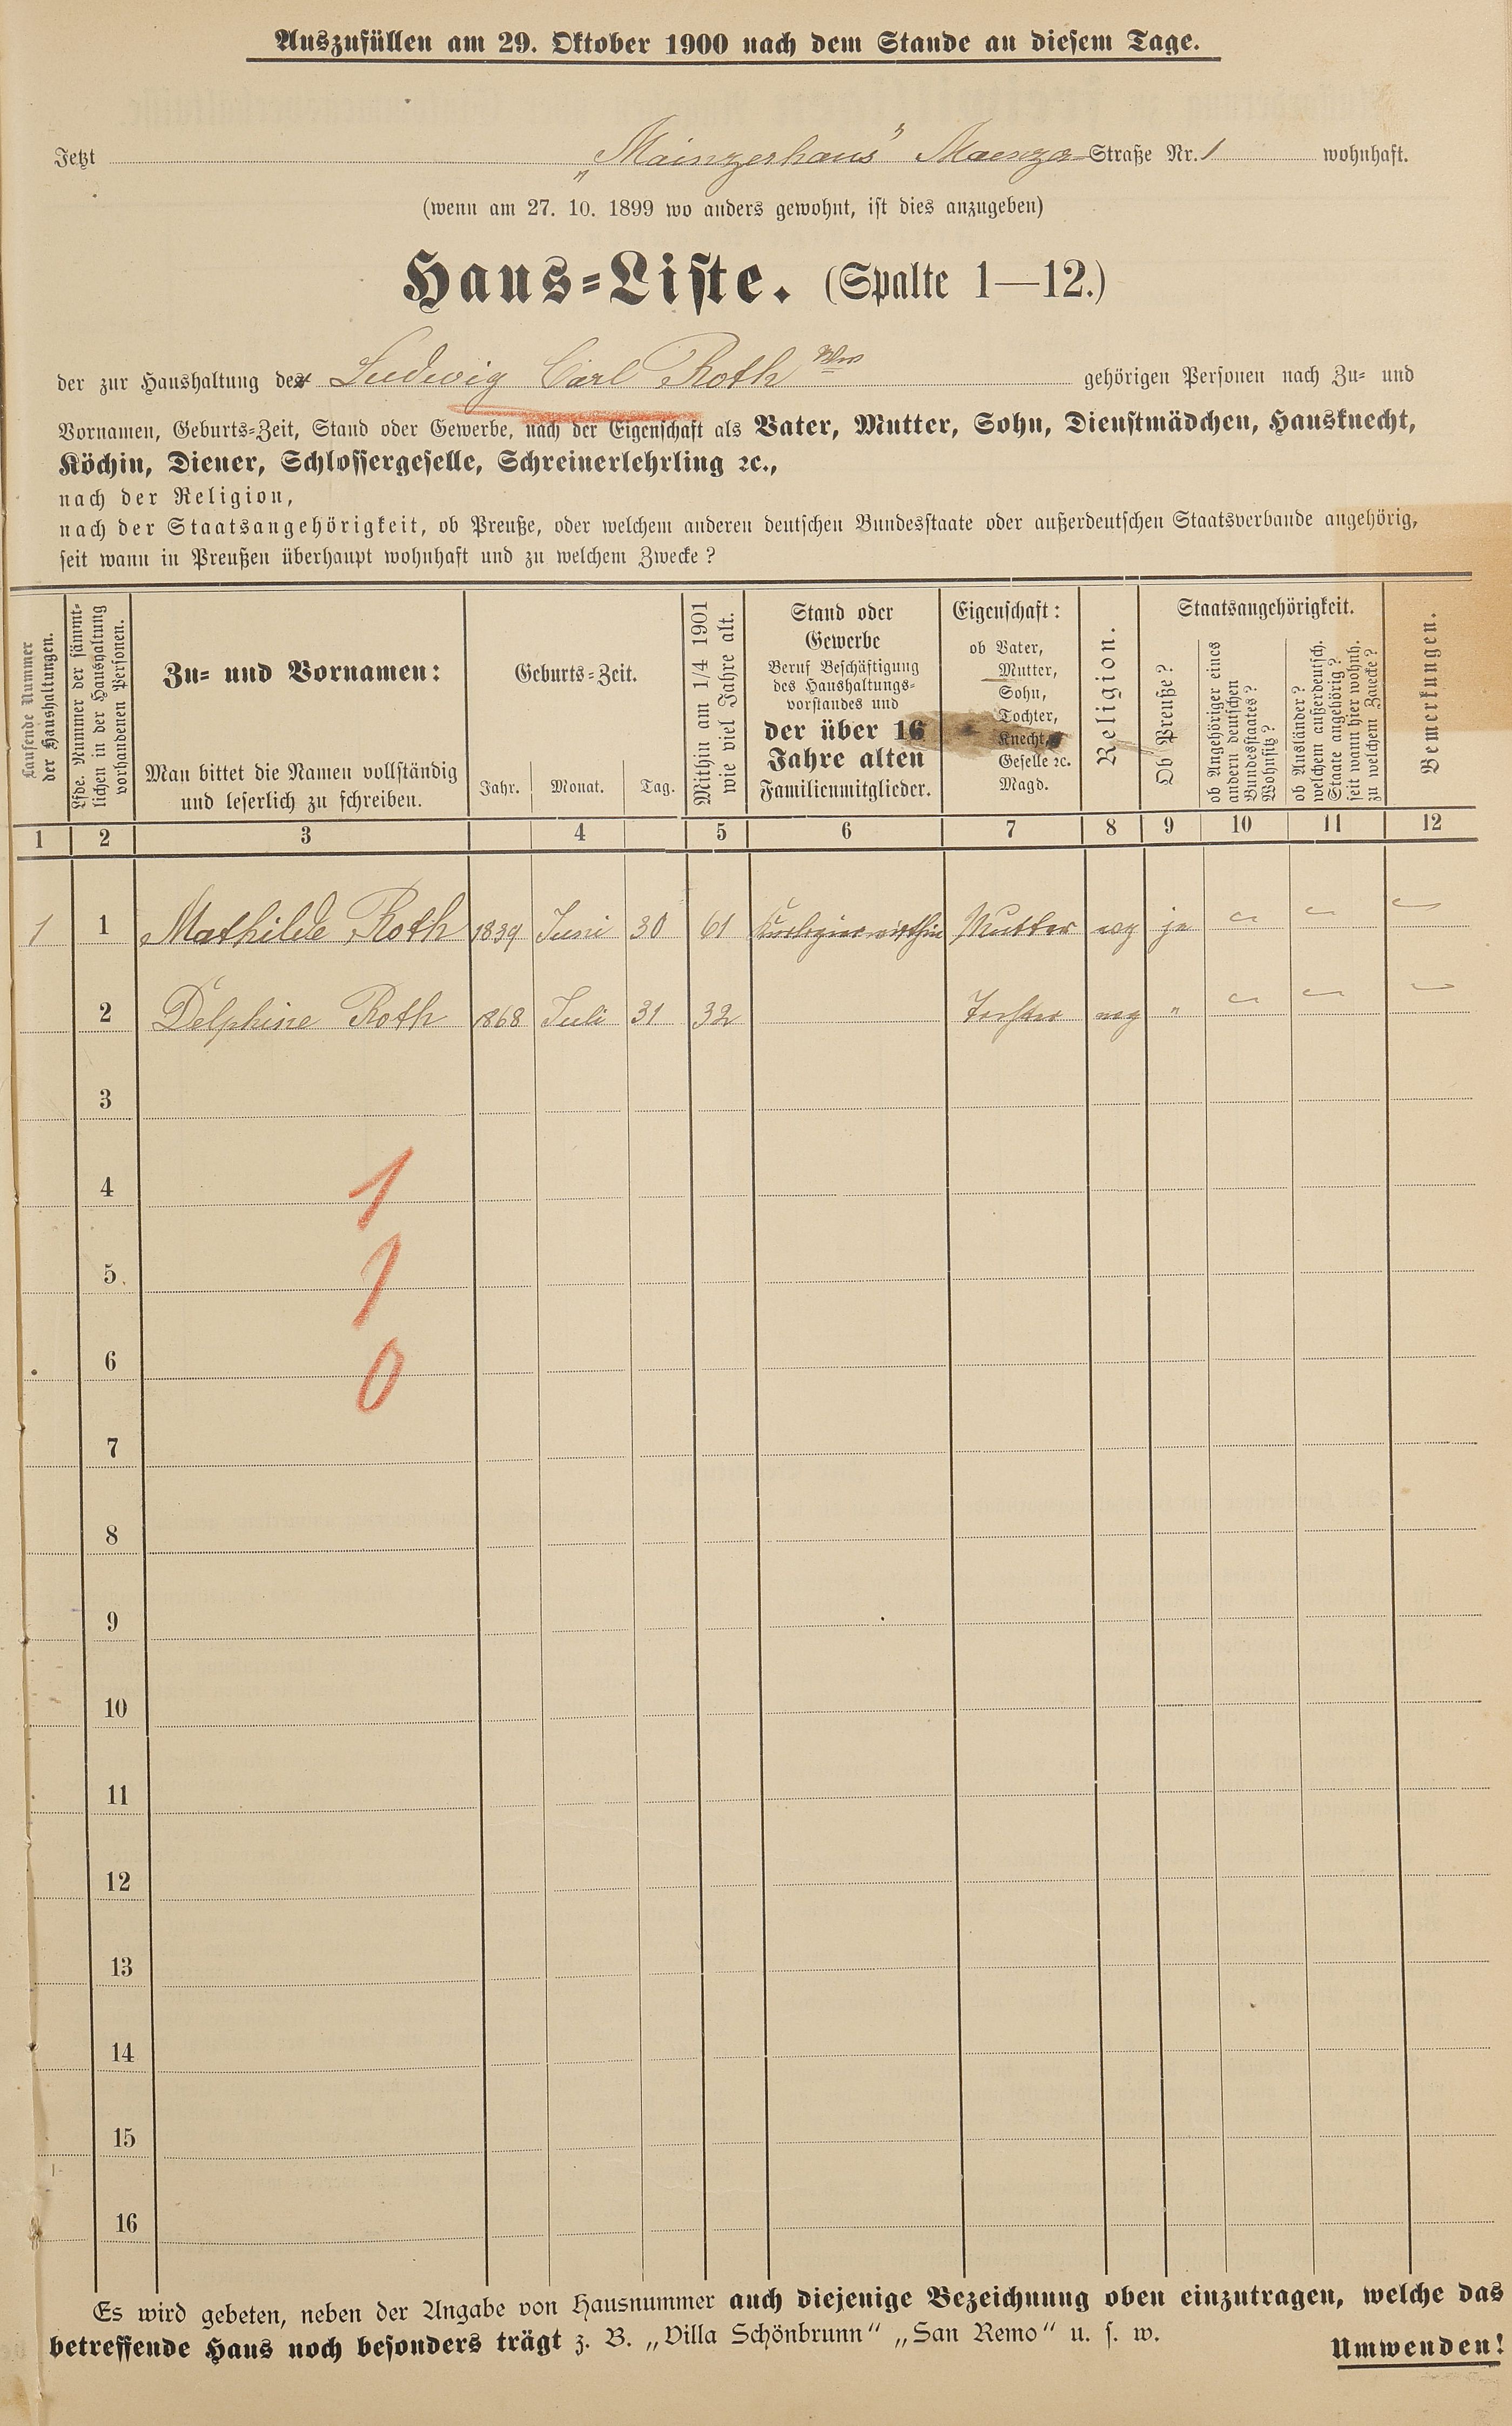 Auszufüllen am 29. Oktober 1900 nach dem Stande an diesem Tage.
Jetzt „Mainzerhaus" Straße Nr. 1 wohnhaft.
(wenn am 27. 10. 1899 wo anders gewohnt, ist dies anzugeben)
Haus-Liste. (Spalte 1—12.)
der zur Haushaltung der Ludwig Carl Roth Wwe gehörigen Personen nach Zu- und
Vornamen, Geburts-Zeit, Stand oder Gewerbe, nach der Eigenschaft als Vater, Mutter, Sohn, Dienstmädchen, Hausknecht,
Köchin, Diener, Schlossergeselle, Schreinerlehrling ꝛc.,
nach der Religion,
nach der Staatsangehörigkeit, ob Preuße, oder welchem anderen deutschen Bundesstaate oder außerdeutschen Staatsverbande angehörig,
seit wann in Preußen überhaupt wohnhaft und zu welchem Zwecke?
Laufende Nummer
der Haushaltungen.
Lfde. Nummer der sämmt-
lichen in der Haushaltung
vorhandenen Personen.
Zu- und Vornamen:
Man bittet die Namen vollständig
und leserlich zu schreiben.
Geburts-Zeit.
Jahr. Monat. Tag.
Mithin am 1/4 1901
wie viel Jahre alt.
Stand oder
Gewerbe
Beruf Beschäftigung
des Haushaltungs-
vorstandes und
der über 16
Jahre alten
Familienmitglieder.
Eigenschaft:
ob Vater,
Mutter,
Sohn,
Tochter,
Knecht,
Geselle ꝛc.
Magd.
Religion.
Staatsangehörigkeit.
Ob Preuße?
ob Angehöriger eines
andern deutschen
Bundesstaates?
Wohnsitz?
ob Ausländer?
welchem außerdeutsch.
Staate angehörig?
seit wann hier wohnh.
zu welchem Zwecke?
Bemerkungen.
1 2 3 4 5 6 7 8 9 10 11 12
1 1 Mathilde Roth 1839 Juni 30 61 Mutter evg ja
2 Delphine Roth 1868 Juli 31 32 Tochter evg "
3
4 1
5 1
6 0
7
8
9
10
11
12
13
14
15
16
Es wird gebeten, neben der Angabe von Hausnummer auch diejenige Bezeichnung oben einzutragen, welche das
betreffende Haus noch besonders trägt z. B. „Villa Schönbrunn" „San Remo" u. s. w.
Umwenden!